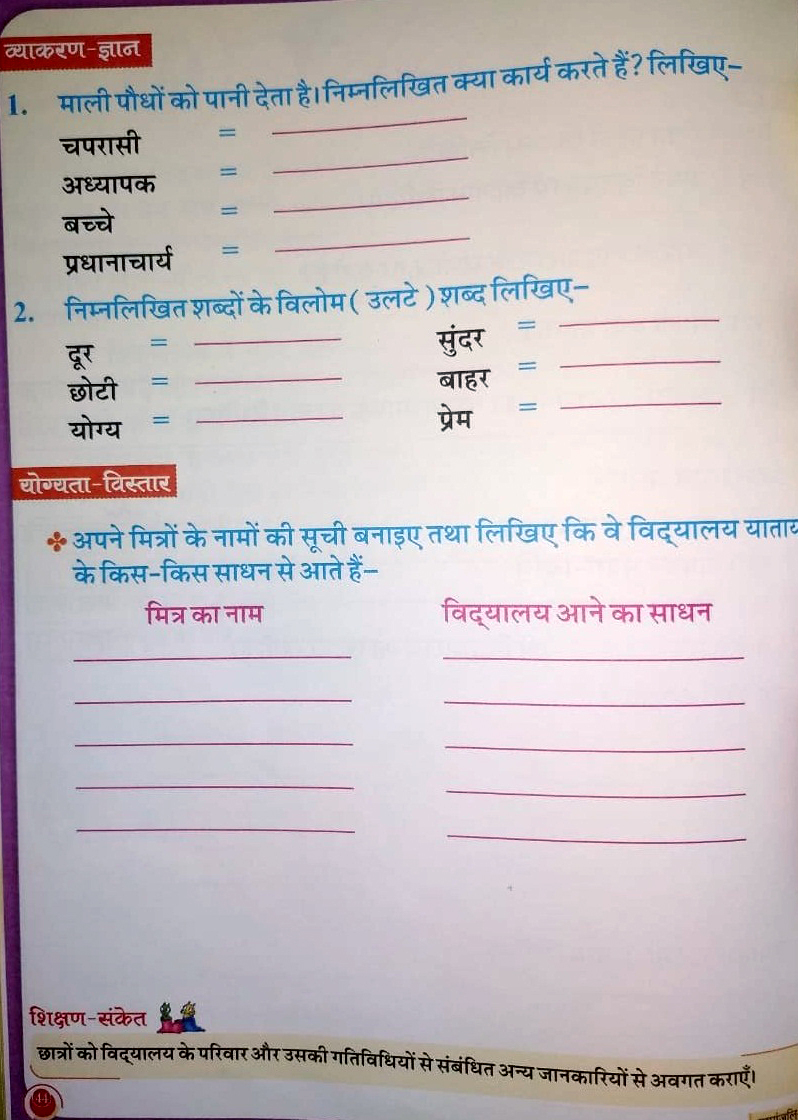 व्याकरण-ज्ञान
1. माली पौधों को पानी देता है। निम्नलिखित क्या कार्य करते हैं? लिखिए–
चपरासी =
अध्यापक =
बच्चे =
प्रधानाचार्य =
2. निम्नलिखित शब्दों के विलोम ( उलटे ) शब्द लिखिए–
दूर = सुंदर =
छोटी = बाहर =
योग्य = प्रेम =
योग्यता-विस्तार
अपने मित्रों के नामों की सूची बनाइए तथा लिखिए कि वे विद्यालय
के किस-किस साधन से आते हैं–
मित्र का नाम विद्यालय आने का साधन
शिक्षण-संकेत
छात्रों को विद्यालय के परिवार और उसकी गतिविधियों से संबंधित अन्य जानकारियों से अवगत कराएँ।
44